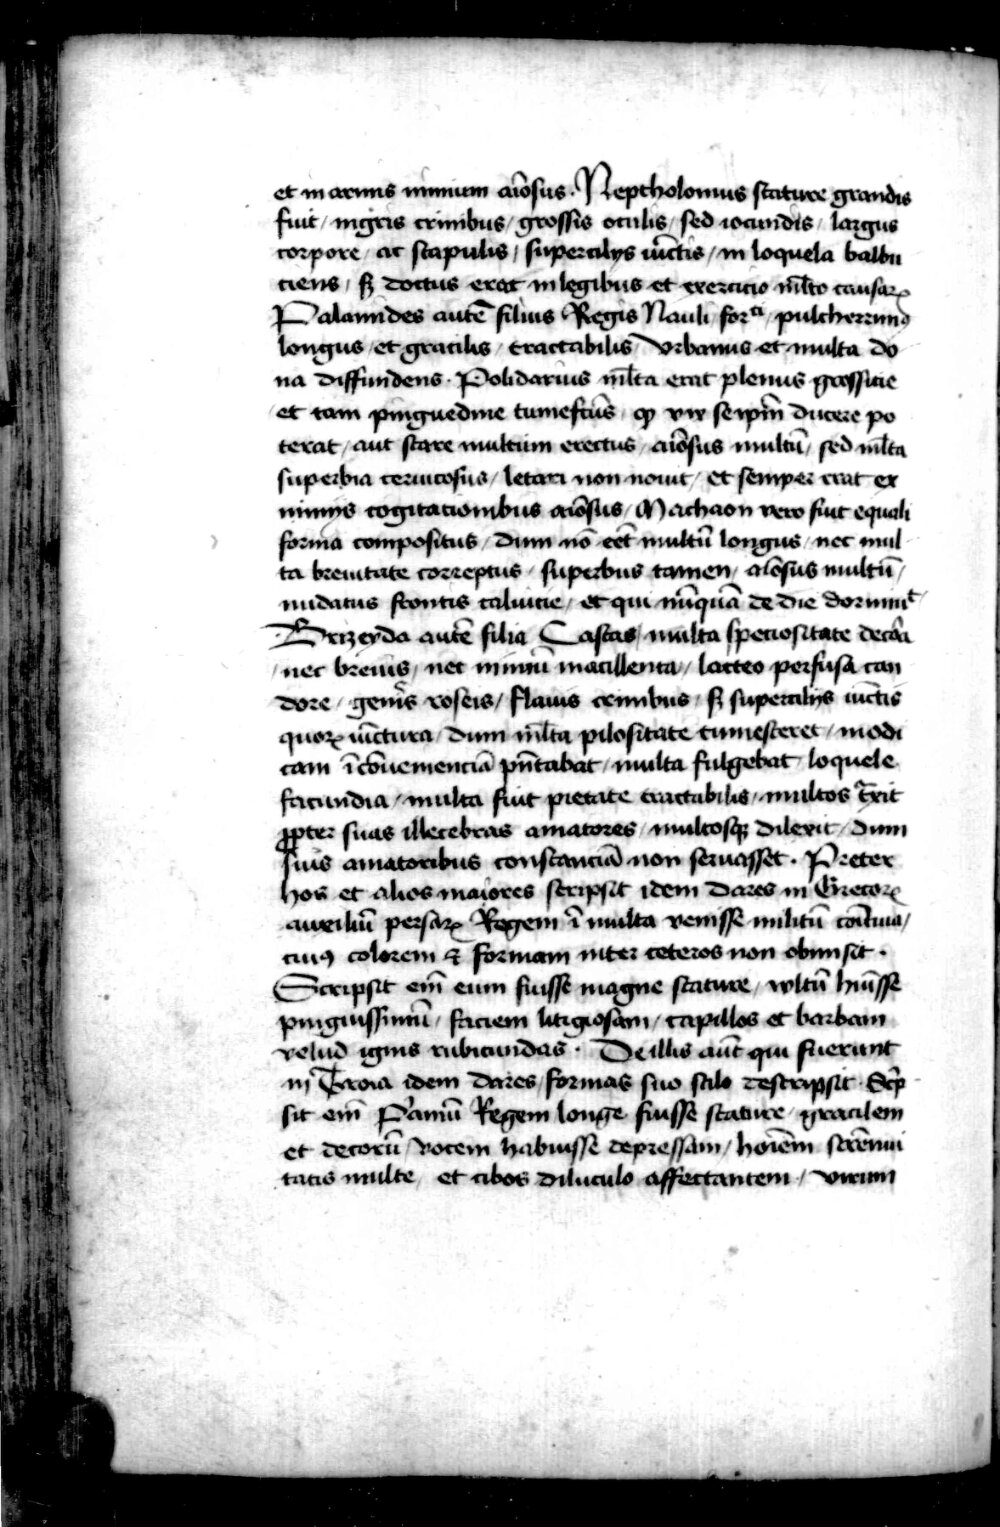 et in armis nimium aīosus · Neptholomus stature grandis
fuit / nigris crinibus / grossis oculis / sed iocundis / largus
corpore / ac scapulis / supercilys iūctis / in loquela balbu
ciens / sꝫ doctus erat in legibus et exercicio ml̄to causaꝝ
Palamides autē filius Regis Nauli for^ti / pulcherrimꝰ
longus / et gracilis / tractabilis / vrbanus et multa do
na diffundens · Polidarius ml̄ta erat plenus grossicie
et tam pinguedine tumefcūs / qꝫ vix se ip̄m ducere po
terat / aut stare multum erectus / aīosus multū / sed ml̄ta
superbia ceruicosus / letari non nouit / et semper erat ex
nimys cogitacionibus aīosus / Machaon vero fuit equali
forma compositus / dum nō eēt multū longus / nec mul
ta breuitate correptus / superbus tamen / aīosus multū /
nudatus frontis caluicie / et qui nūquā de die dormiuit
Brizeyda autē filia Calcas / multa speciositate decōa
nec breuis / nec nimiū macillenta / lacteo perfusa can
dore / genis roseis / flauis crinibus / sꝫ supercilys iūctis
quoꝝ iūctura / dum ml̄ta pilositate tumesceret / modi
cam īcōuenienciā pn̄tabat / multa fulgebat loquele
facundia / multa fuit pietate tractabilis / multos traxit
ꝓpter suas illecebras amatores / multosqꝫ dilexit / dum
suis amatoribus constanciā non seruasset · Preter
hos et alios maiores scripsit idem dares in Grecoꝝ
auxiliū persaꝝ Regem ī multa venisse militū cōitiua /
cuiꝰ colorem & formam inter ceteros non obmisit ·
Scripsit em̄ eum fuisse magne stature / vultū hūisse
pinguissimū / faciem litigiosam / capillos et barbam
velud ignis rubicundas · De illis aūt qui fuerunt
in Troia idem dares / formas suo stilo descripsit · Scrip
sit em̄ Pamū Regem longe fuisse stature / gracilem
et decorū / vocem habuisse depressam / hoīem strēnui
tatis multe / et cibos diluculo affectantem / virum